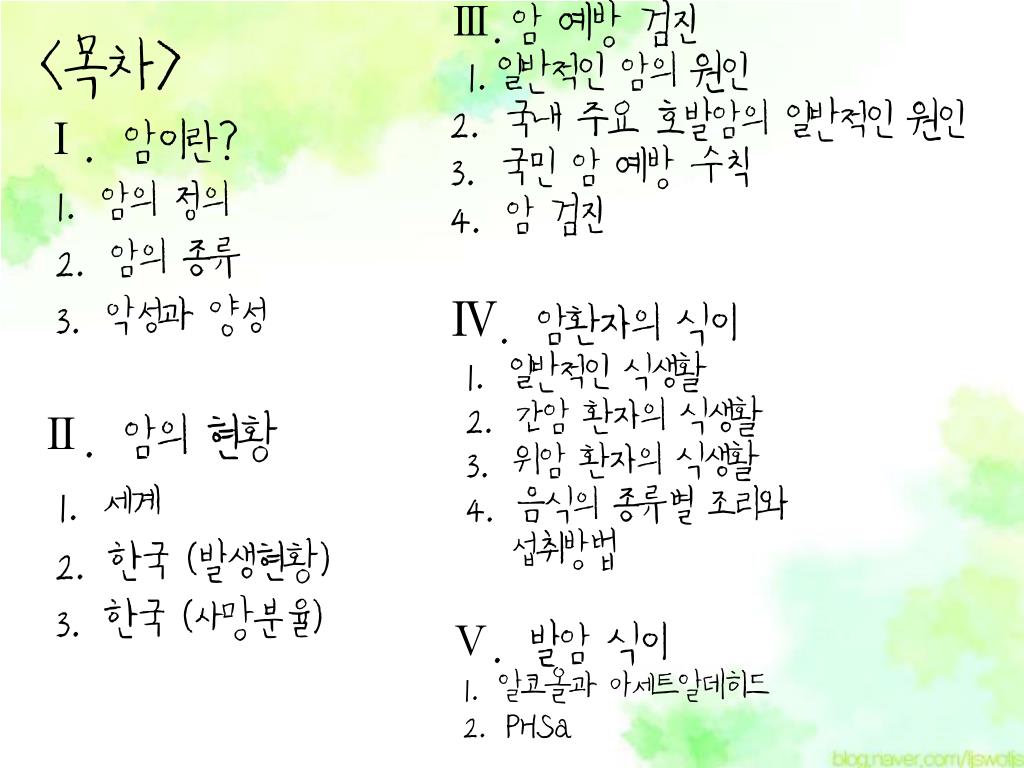 <목차>
Ⅰ. 암이란?
1. 암의 정의
2. 암의 종류
3. 악성과 양성
Ⅱ. 암의 현황
1. 세계
2. 한국 (발생현황)
3. 한국 (사망분율)
Ⅲ. 암 예방 검진
1. 일반적인 암의 원인
2. 국내 주요 호발암의 일반적인 원인
3. 국민 암 예방 수칙
4. 암 검진
Ⅳ. 암환자의 식이
1. 일반적인 식생활
2. 간암 환자의 식생활
3. 위암 환자의 식생활
4. 음식의 종류별 조리와
섭취방법
Ⅴ. 발암 식이
1. 알코올과 아세트알데히드
2. PHSa
blog.naver.com/ljswoljs